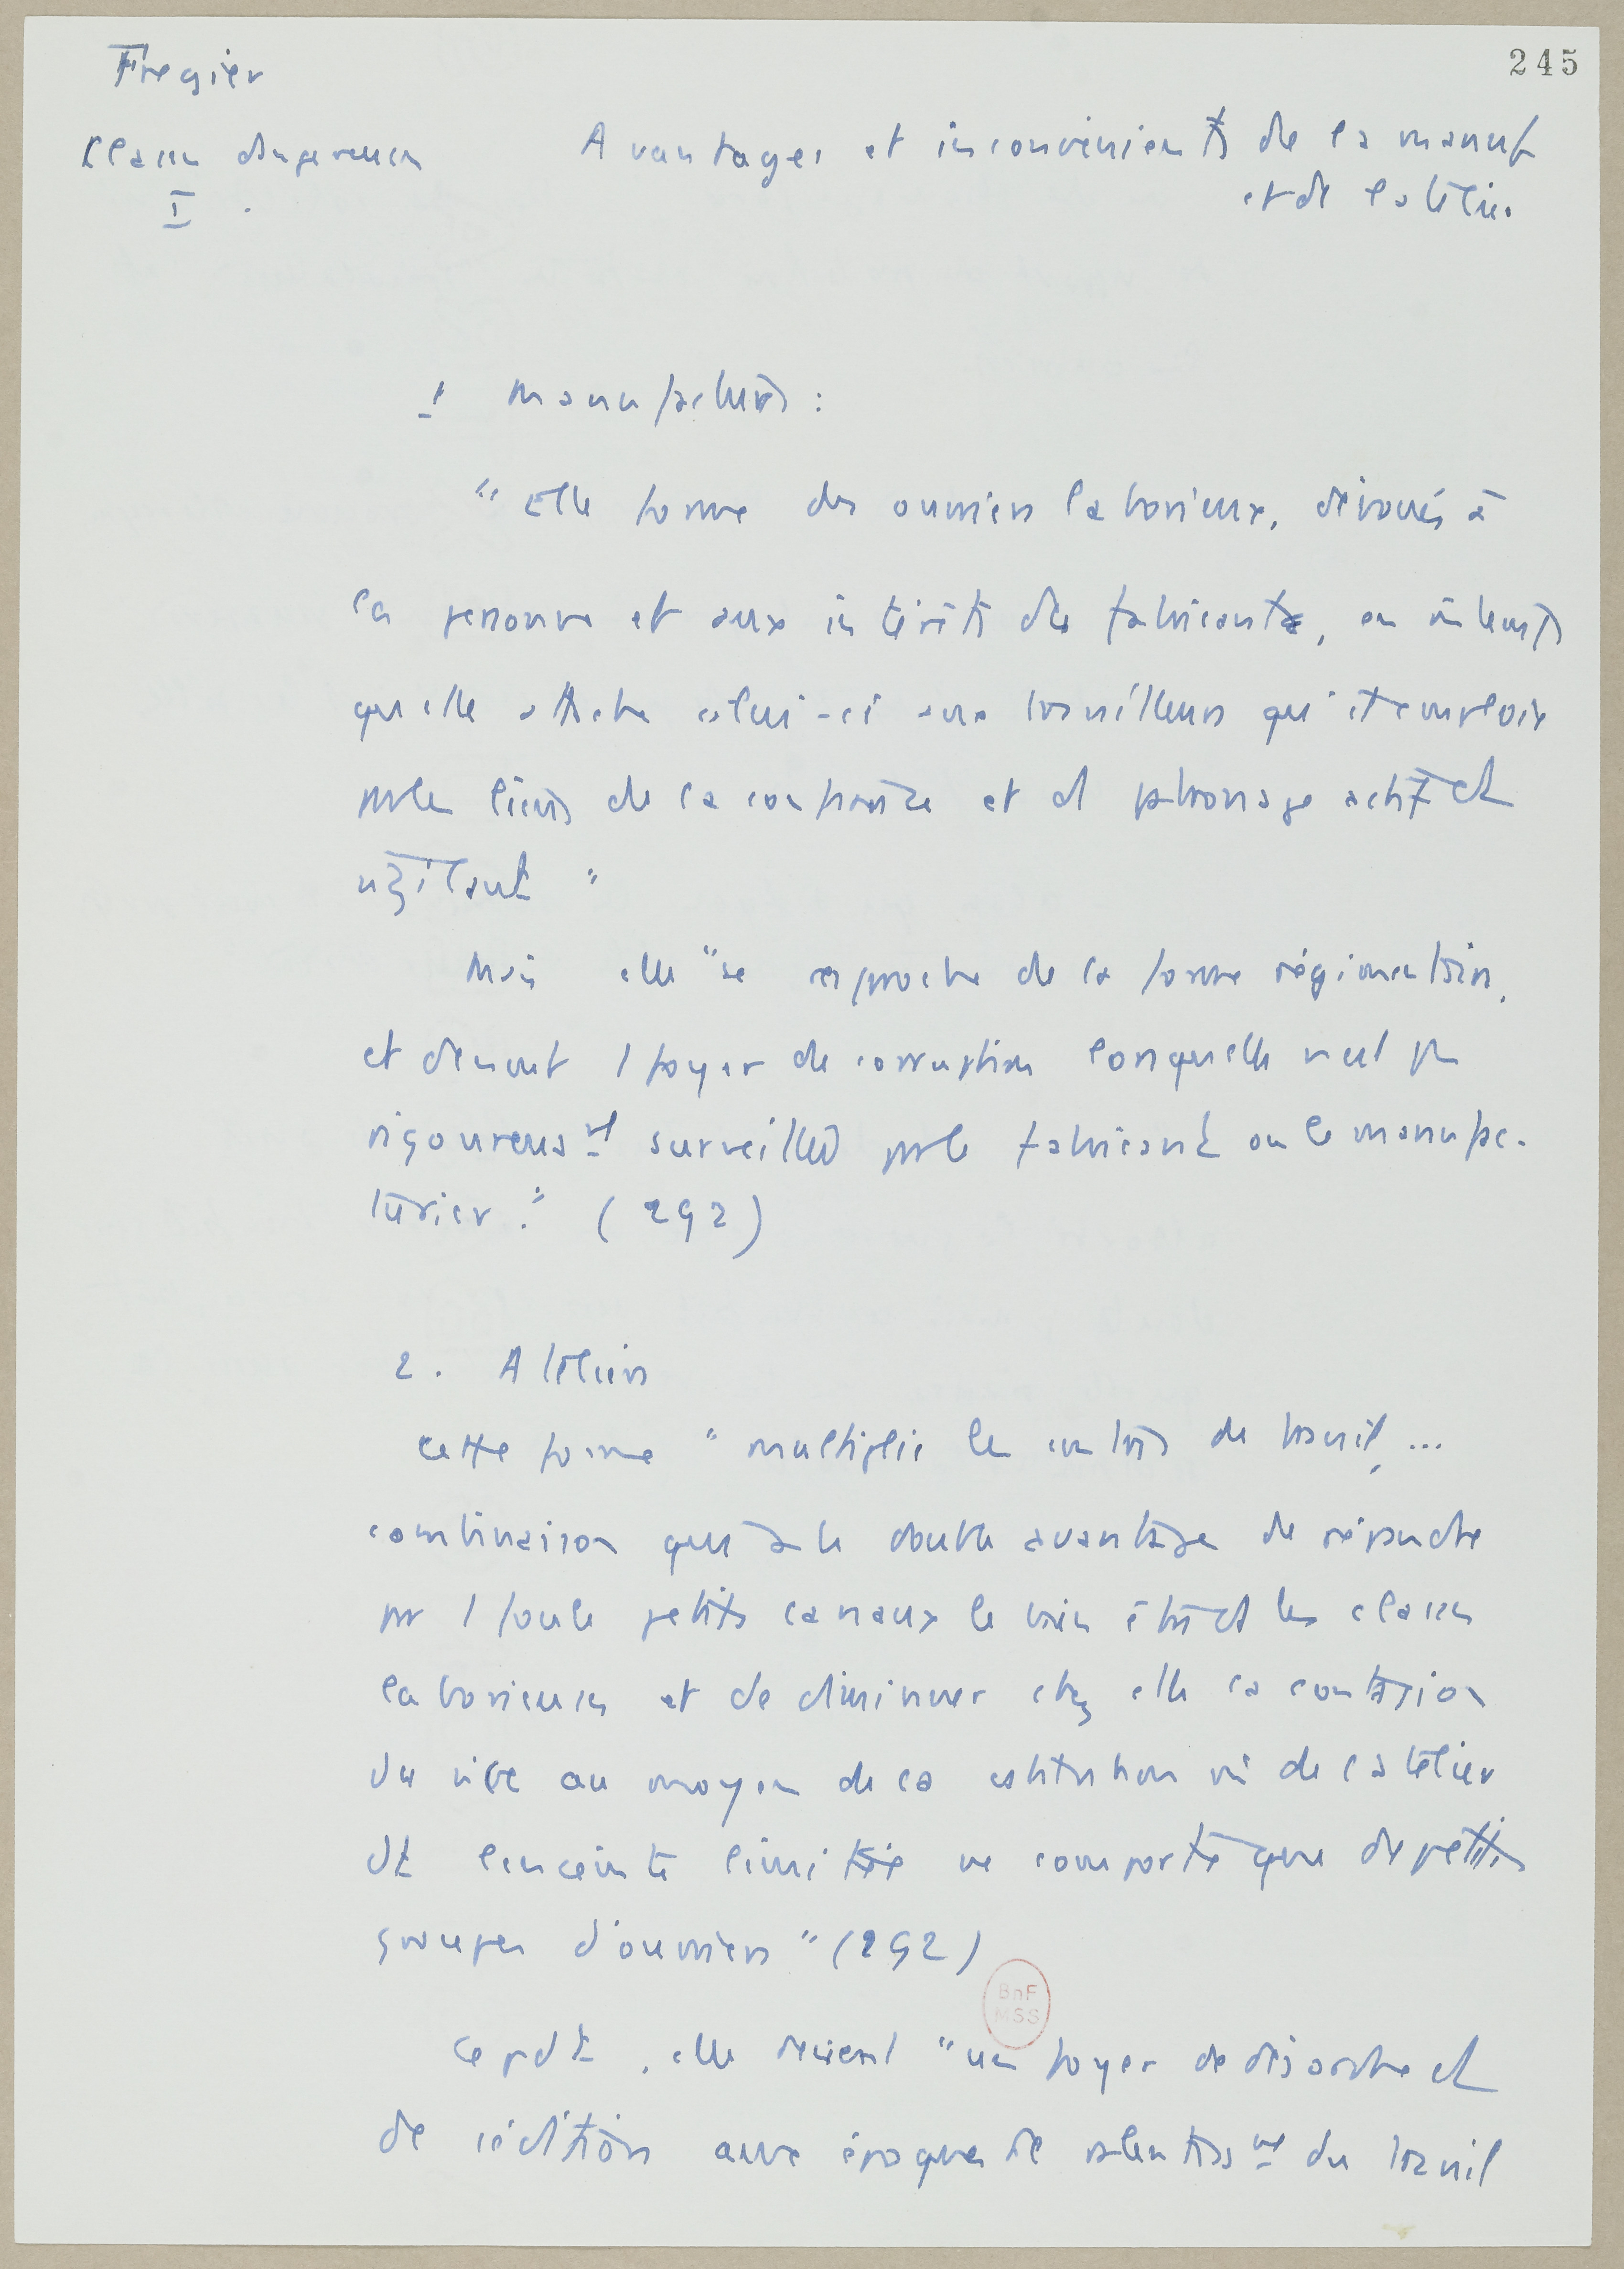 Fregier
245
Classes dangereuses
I.
Avantages et inconvénients de la manuf
et de l'atelier
1 Manufactures :
"Elle forme des ouvriers laborieux, dévoués à
la personne et aux intérêts du fabricant,
qu'elle attache celui-ci aux travailleurs qu'il emploie
par les liens de la confiance et d patronage actif et
vigilant "
Mais elle "se rapproche de la forme régimentaire,
et devient 1 foyer de corruption lorsqu'elle n'est pas
rigoureusmt surveillée par le fabricant ou le manufac-
turier." (292)
2. Ateliers
Cette forme "multiplie les centres de travail, ...
combinaison qui a le double avantage de répandre
par 1 foule petits canaux le bien être ds les classes
laborieuses et de diminuer chez elles la contagion
du vice au moyen de la de l'atelier
dt l'enceinte limitée ne comporte que de petits
groupes d'ouvriers" (292)
BnF
MSS
Cepdt, elle devient "un foyer de désordre et
de sédition aux époques de ralentissmt du travail